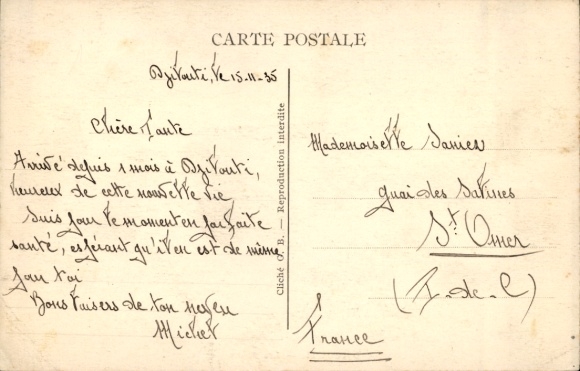 CARTE POSTALE
Djibouti, le 15-11-35
Chère Tante
Arrivé depuis 1 mois à Djibouti,
heureux de cette nouvelle vie,
suis pour le moment en parfaite
santé, espérant qu'il en est de même
pour toi
Bons baisers de ton neveu
Michel
Cliché O. B. — Reproduction interdite
Mademoiselle
quai des Salines
St. Omer
(P-de-C)
France